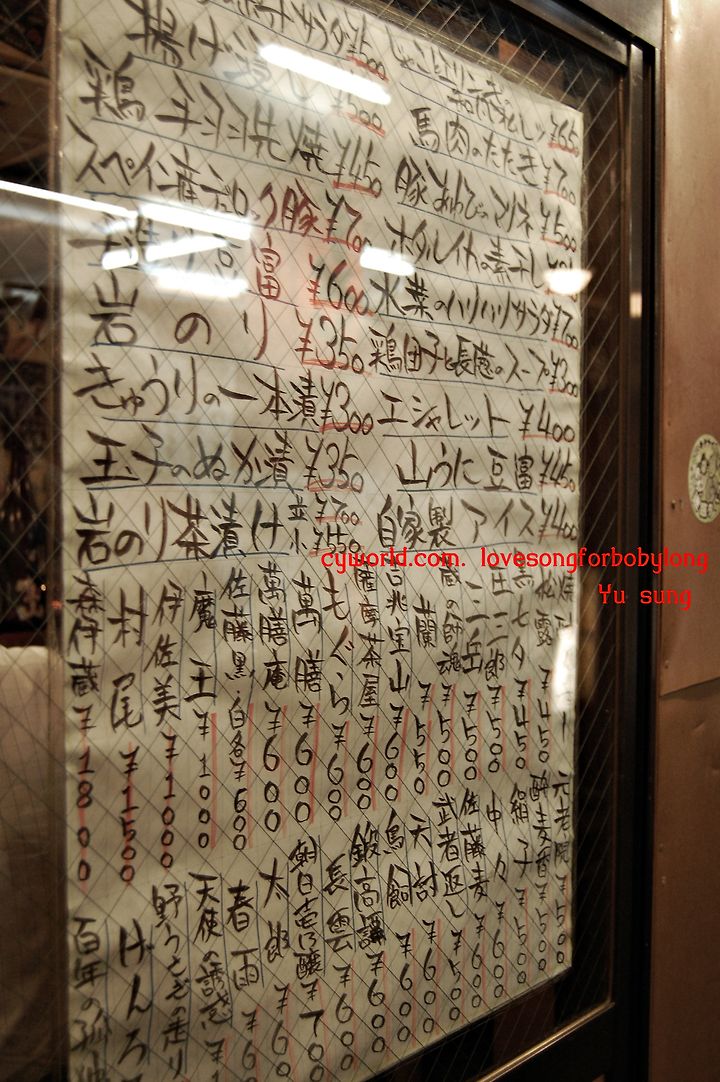 サラダ ¥500
揚げ ¥500
¥650
鶏手羽先焼 ¥450
馬肉のたたき ¥700
スペイン産 豚 ¥700
豚 マリネ ¥500
富 ¥600
ホタルイカの素干し
岩のり ¥350
水菜のハリハリサラダ ¥700
きゅうりの一本漬 ¥300
鶏団子と長葱のスープ ¥300
玉子のぬか漬 ¥350
エシャレット ¥400
岩のり茶漬け 並 ¥700 小 ¥550
山うに豆富 ¥450
自家製アイス ¥400
cyworld.com. lovesongforbobylong
Yu sung
松露 ¥450
七夕 ¥450
庄三郎 ¥500
二岳 ¥500
蔵の師魂 ¥500
蘭 ¥550
吉兆宝山 ¥600
薩摩茶屋 ¥600
もぐら ¥600
萬膳 ¥600
萬膳庵 ¥600
佐藤黒・白各 ¥600
魔王 ¥1000
伊佐美 ¥1000
村尾 ¥1500
森伊蔵 ¥1800
元老院 ¥500
酔麦香 ¥500
絹子 ¥500
中々 ¥600
佐藤麦 ¥600
武者返し ¥500
天討 ¥600
鳥飼 ¥600
鍛高譚 ¥600
長雲 ¥600
朝日壱乃醸 ¥700
太郎 ¥600
春雨 ¥60
天使の誘惑 ¥
野うさぎの走り
げんろ
百年の孤